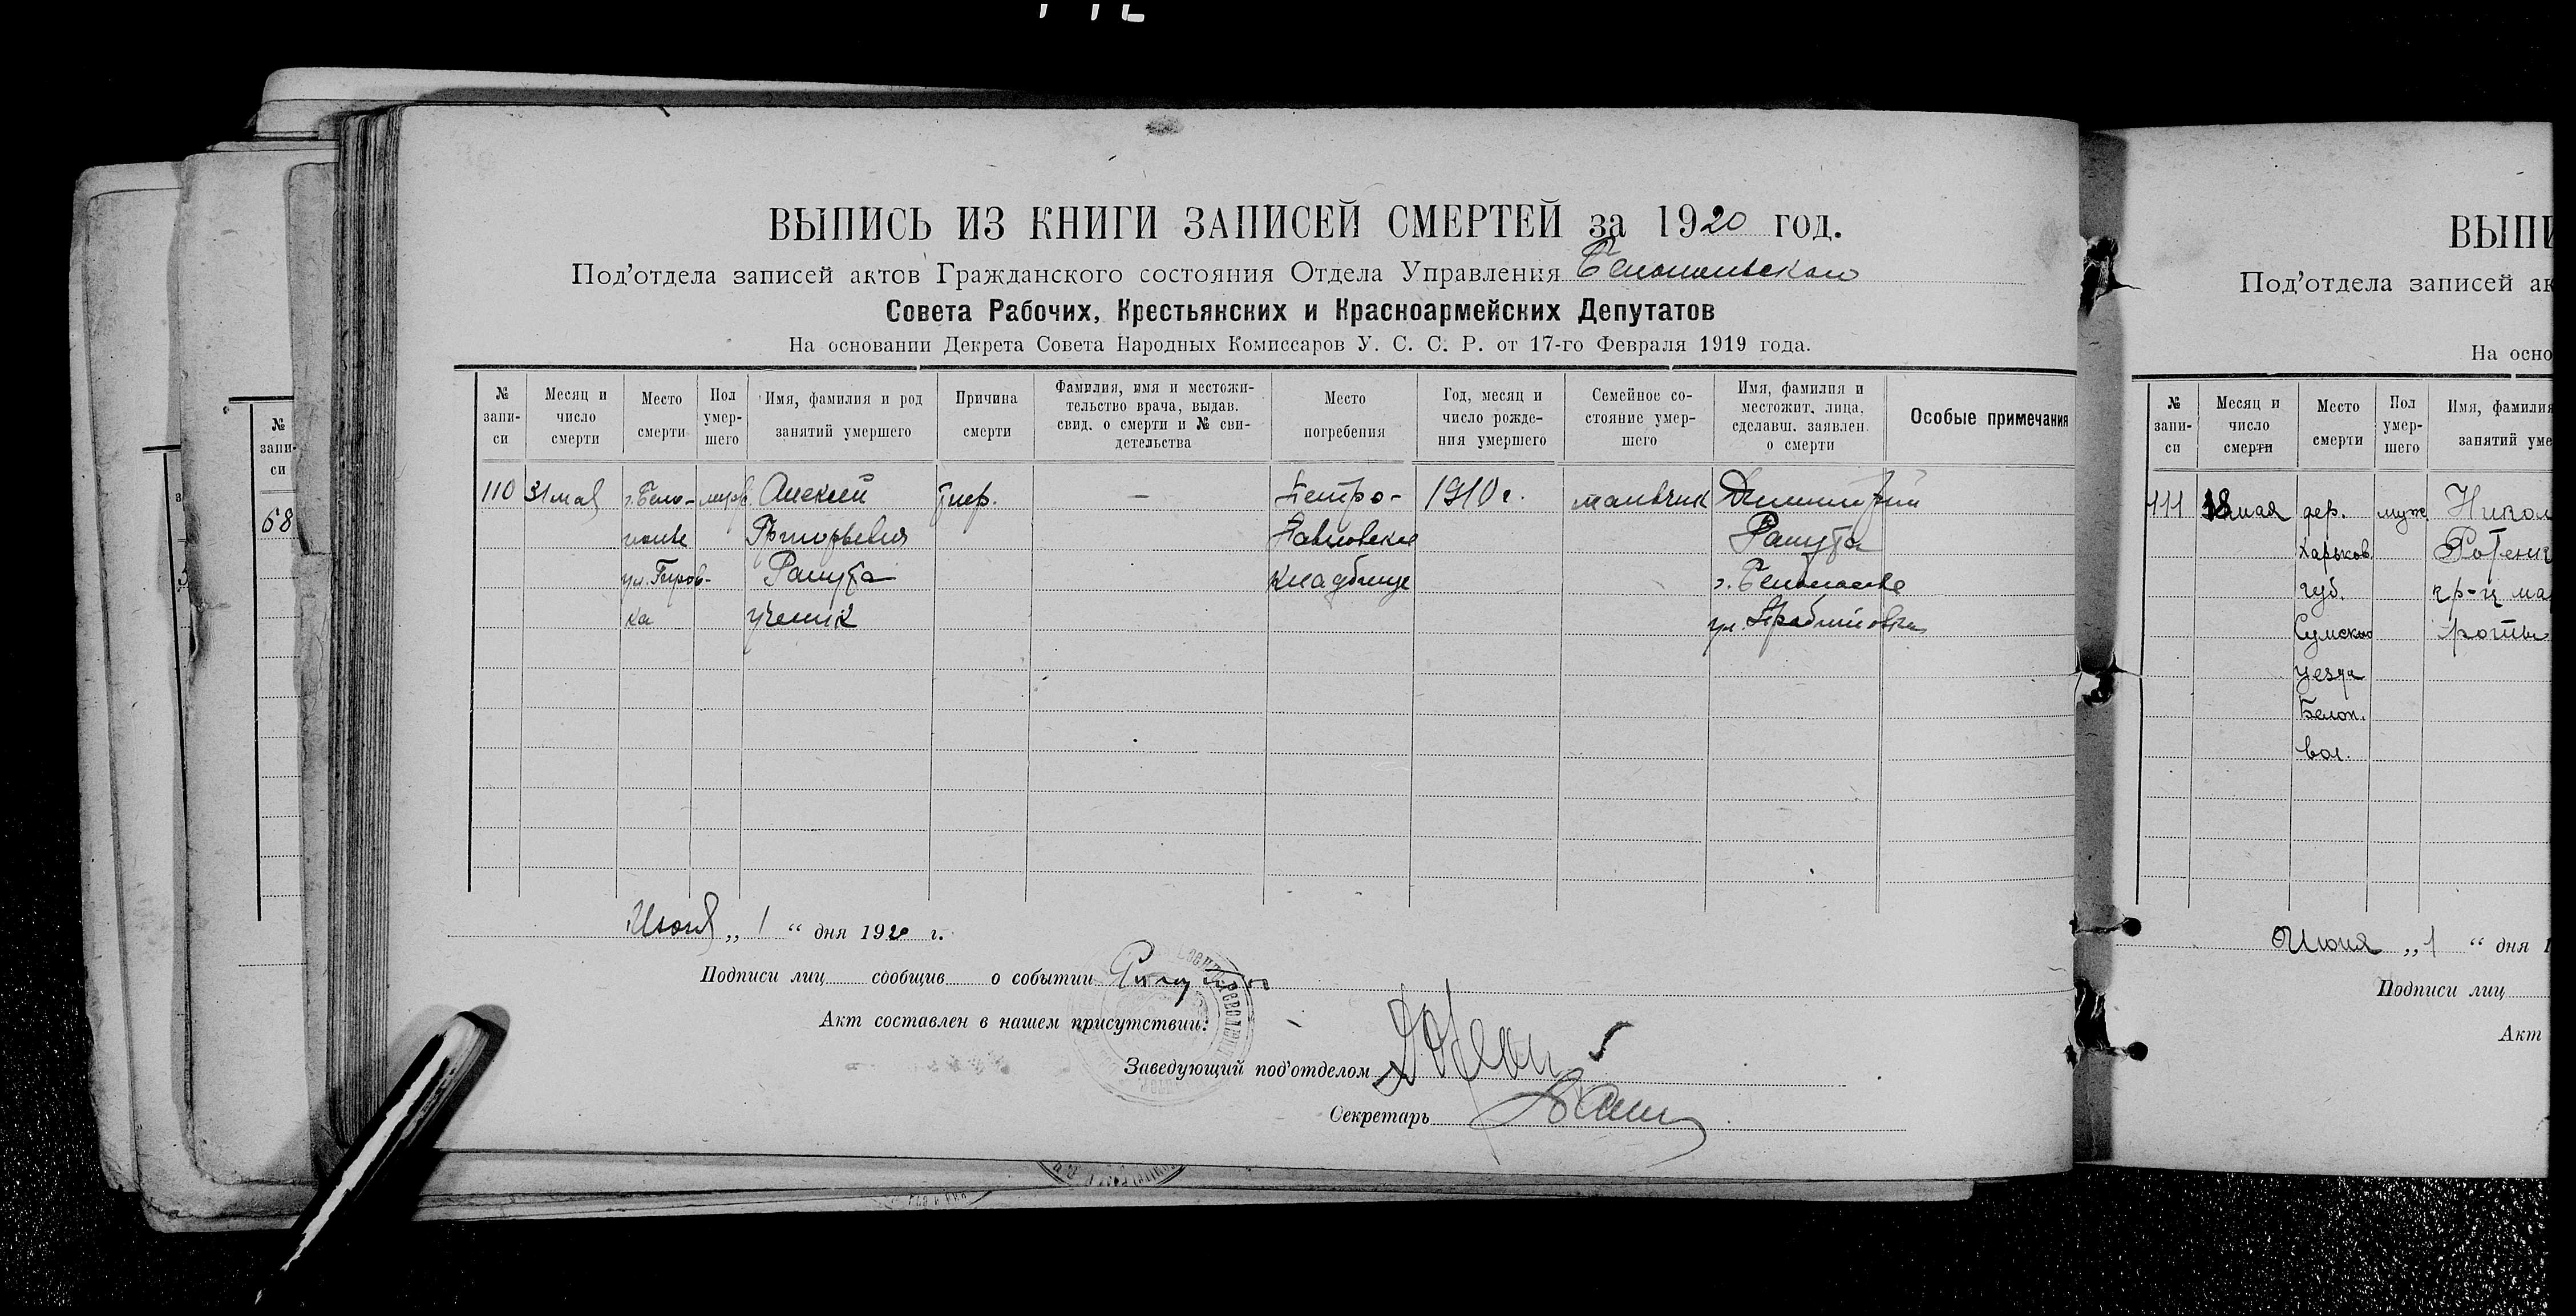 ВЫПИСЬ ИЗ КНИГИ ЗАПИСЕЙ СМЕРТЕЙ за 1920 год.
Под'отдела записей актов Гражданского состояния Отдела Управления Белопольскаго
Совета Рабочих, Крестьянских и Красноармейских Депутатов
На основании Декрета Совета Народных Комиссаров У. С. С. Р. от 17-го Февраля 1919 года.
№ запи-си
Месяц и число смерти
Место смерти
Пол умер-шего
Имя, фамилия и род занятий умершего
Причина смерти
Фамилия, имя и местожи-тельство врача, выдав. свид. о смерти и № сви-детельства
Место погребения
Год, месяц и число рожде-ния умершего
Семейное со-стояние умер-шего
Имя, фамилия и местожит. лица, сделавш. заявлен. о смерти
Особые примечания
110 31 мая г. Бело- Алексей — Петро- 1910 г. мальчик Димитрий
полье Григорьевич Павловское
кладбище г. Белополье
ка ученик ул.
Июня „ 1 “ дня 1920 г.
Подписи лиц сообщив о событии
Акт составлен в нашем присутствии:
Заведующий под'отделом
Секретарь
ВЫПИ
Под'отдела записей ак
На осно
№ запи-си
Месяц и число смерти
Место смерти
Пол умер-шего
Имя, фамилия
занятий уме
111 18 мая дер. муж Никол
Харьков.
губ.
Сумского
уезда
Белоп.
вол.
Июня „ 1 “ дня 1
Подписи лиц
Акт
№
запи-
си
68